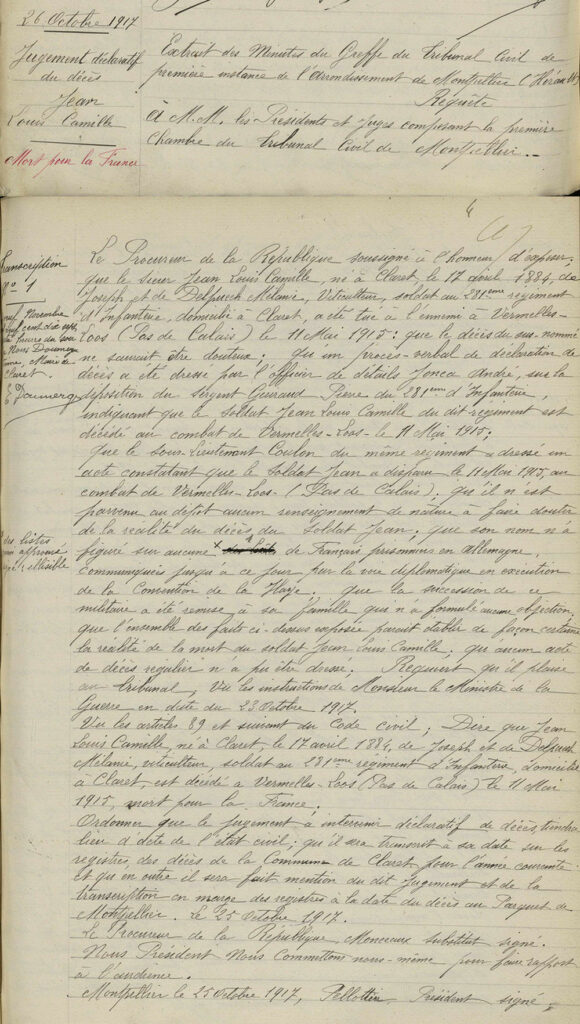 26 Octobre 1917
Jugement déclaratif
du décès
Jean
Louis Camille
Mort pour la France
Extrait des Minutes du Greffe du Tribunal Civil de
première instance de l'arrondissement de Montpellier (Hérault)
Requête
à M.M. les Présidents et Juges composant la première
Chambre du Tribunal Civil de Montpellier.
Transcription
n° 1
Novembre
Maire de
Claret
E Doumerg
des listes
Le Procureur de la République soussigné à l'honneur d'exposer,
que le sieur Jean Louis Camille, né à Claret, le 17 avril 1884, de
Joseph et de Delpuech Mélanie, Viticulteur, soldat au 281eme regiment
d'Infanterie, domicilié à Claret, a été tué à l'ennemi à Vermelles-
Loos (Pas de Calais) le 11 Mai 1915; que le décès du sus-nommé
ne saurait être douteux; qu'un procès-verbal de déclaration de
décès a été dressé par l'officier de détails Jonca André, sur la
déposition du Sergent Guiraud Pierre du 281eme d'Infanterie,
indiquant que le soldat Jean Louis Camille du dit régiment est
décédé au combat de Vermelles-Loos le 11 Mai 1915;
que le Sous-Lieutenant Coulon du même regiment a dressé un
acte constatant que le Soldat Jean a disparu le 11 Mai 1915, au
combat de Vermelles-Loos (Pas de Calais); qu'il n'est
parvenu au dépôt aucun renseignement de nature à faire douter
de la réalité du décès du soldat Jean; que son nom n'a
figuré sur aucune de Français prisonniers en Allemagne,
communiquées jusqu'à ce jour par la voie diplomatique en exécution
de la Convention de la Haye; que la succession de ce
militaire a été remise à sa famille qui n'a formulé aucune objection;
que l'ensemble des faits ci-dessus exposés parait établir de façon certaine
la réalité de la mort du soldat Jean Louis Camille; qu'aucun acte
de décès régulier n'a pu être dressé. Requiert qu'il plaise
au tribunal, Vu les instructions de Monsieur le Ministre de la
Guerre en date du 23 Octobre 1917.
Vu les articles 89 et suivant du Code civil; Dire que Jean
Louis Camille, né à Claret, le 17 avril 1884, de Joseph et de Delpuech
Mélanie, viticulteur, soldat au 281eme régiment d'Infanterie, domicilié
à Claret, est décédé à Vermelles-Loos (Pas de Calais) le 11 Mai
1915, mort pour la France;
Ordonner que le jugement à intervenir déclaratif de décès, tiendra
lieu d'acte de l'état civil; qu'il sera transcrit à sa date sur les
registres des décès de la Commune de Claret pour l'année courante
et qu'en outre il sera fait mention du dit Jugement et de la
transcription en marge des registres à la date du décès au Parquet de
Montpellier. Le 25 Octobre 1917.
Le Procureur de la République Monceaux substitut signé.
Nous Président Nous Commettons nous-même pour faire rapport
à l'audience.
Montpellier le 25 Octobre 1917, Pellottier Président signé,